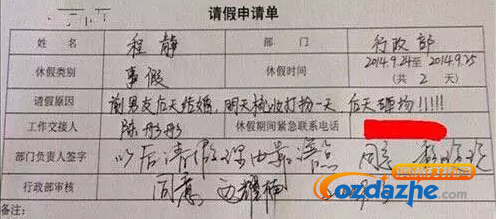 请假申请单
姓名 程静 部门 行政部
休假类别 事假 休假时间 2014.9.24至2014.9.25
(共2天)
请假原因 前男友后天结婚,明天梳妆打扮一天 后天砸场!!!!!
工作交接人 陈彤彤 休假期间紧急联系电话
部门负责人签字 以后请假理由靠谱点 同意
行政部审核 同意
备注:
ozdazhe.com